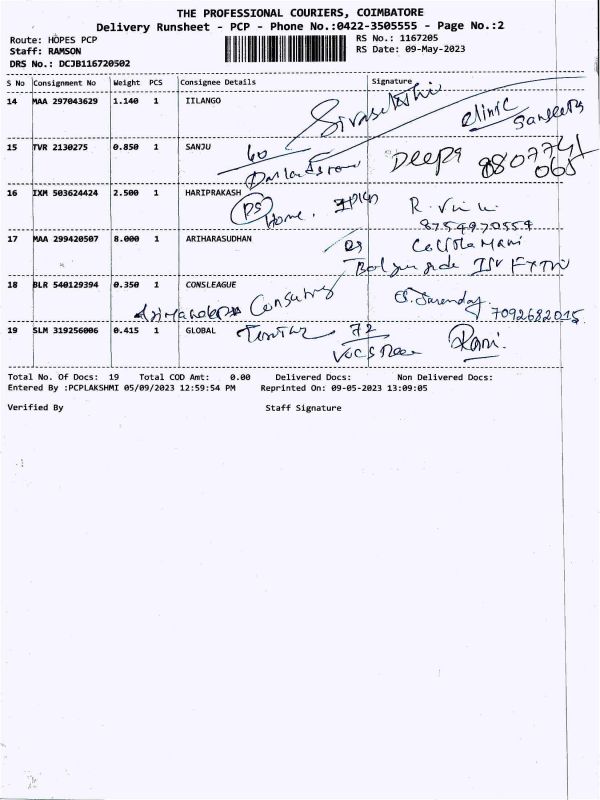 THE PROFESSIONAL COURIERS, COIMBATORE
Delivery Runsheet - PCP - Phone No.:0422-3505555 - Page No.:2
Route: HOPES PCP
RS No.: 1167205
Staff: RAMSON
RS Date: 09-May-2023
DRS No.: DCJB116720502
S No Consignment No Weight PCS Consignee Details Signature
14 MAA 297043629 1.140 1 IILANGO
clinic
15 TVR 2130275 0.850 1 SANJU
60 Deepa 8807741
065
16 IXM 503624424 2.500 1 HARIPRAKASH
Home. R.
8754970554
17 MAA 299420507 8.000 1 ARIHARASUDHAN
18 BLR 540129394 0.350 1 CONSLEAGUE
7092682015
19 SLM 319256006 0.415 1 GLOBAL
72 Rani.
Total No. Of Docs: 19 Total COD Amt: 0.00 Delivered Docs: Non Delivered Docs:
Entered By :PCPLAKSHMI 05/09/2023 12:59:54 PM Reprinted On: 09-05-2023 13:09:05
Verified By Staff Signature